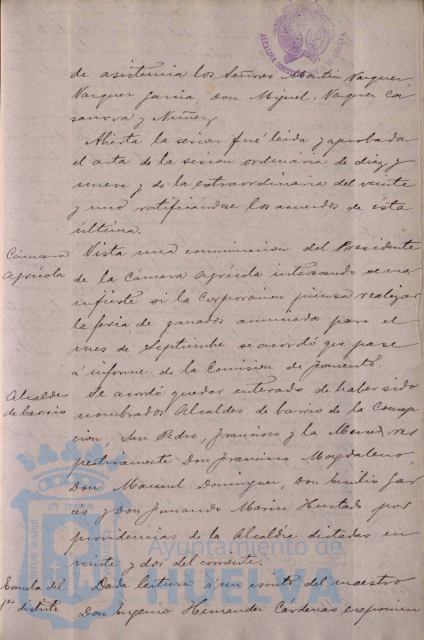 de asistencia los Señores Martin Vazquez
Vazquez Garcia, don Miguel, Vazquez Ca
sanova y Nuñez
Abierta la sesion fué leida y aprobada
el acta de la sesion ordinaria de diez y
nueve y de la extraordinaria del veinte
y uno ratificándose los acuerdos de ésta
última.
Cámara
Agrícola
Vista una comunicacion del Presidente
de la Cámara Agrícola interesando se ma
nifieste si la Corporacion piensa realizar
la feria de ganados anunciada para el
mes de Septiembre se acordó que pase
á informe de la Comision de fomento
Alcaldes
de barrio
Se acordó quedar enterado de haber sido
nombrados Alcaldes de barrio de la Concep
cion, San Pedro, San Francisco y la Merced res
pectivamente Don Francisco Magdaleno,
Don Manuel Dominguez, Don Emilio Gar
cés y Don Fernando Marin Hurtado por
providencias de la Alcaldia dictadas en
veinte y dos del corriente.
Escuela del
1er distrito
Dada lectura á un escrito del maestro
Don Eugenio Hernandez Cárdenas exponien
Ayuntamiento de
HUELVA